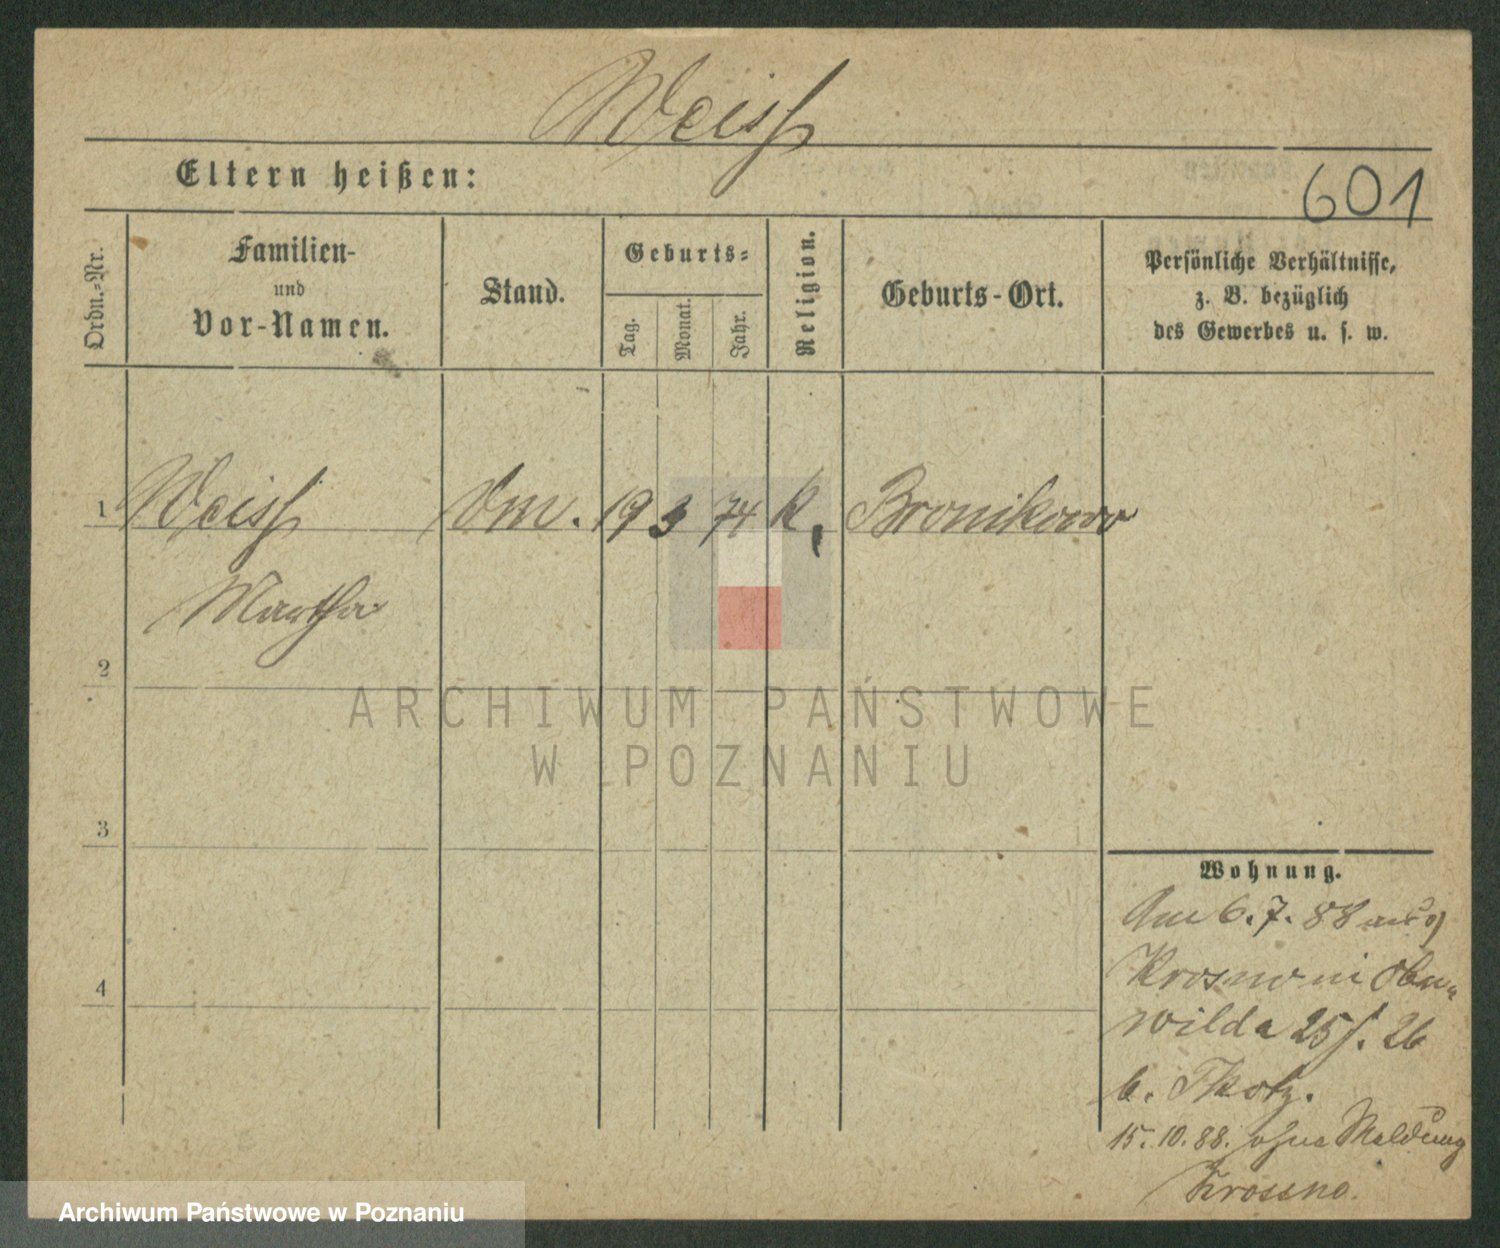 Weiß
Eltern heißen:
601
Ordn.-Nr.
Familien-
und
Vor-Namen.
Stand.
Geburts-
Tag.
Monat.
Jahr.
Religion.
Geburts-Ort.
Persönliche Verhältnisse,
z. B. bezüglich
des Gewerbes u. s. w.
1 Weiß 19 3 74 K. Bronikowo
Martha
2
ARCHIWUM PAŃSTWOWE
W POZNANIU
3
4
Wohnung.
Am 6.7.88 aus
Krosno in Ober-
wilda 25/. 26
b. Tkotz.
15.10.88. ohne Meldung
Krossno.
Archiwum Państwowe w Poznaniu